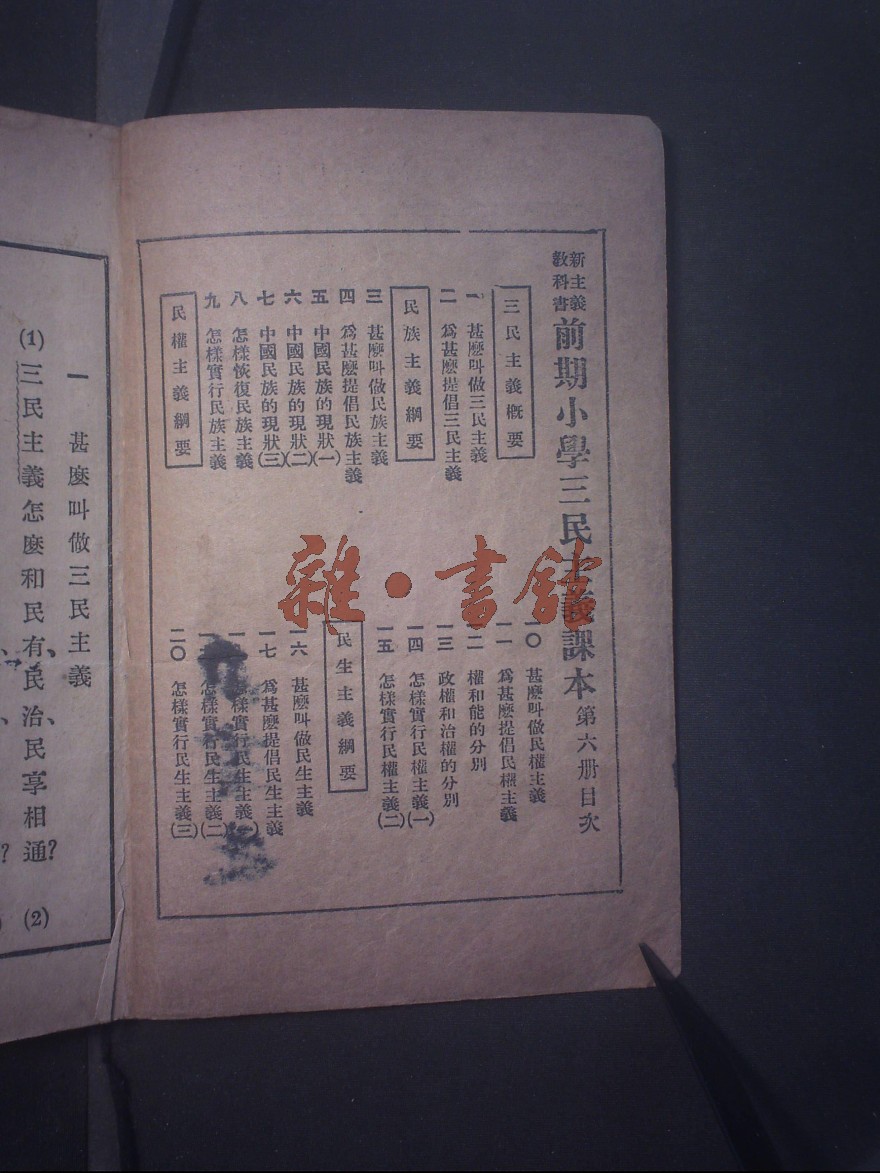 新主義
教科書
前期小學三民主義課本 第六册目次
三民主義概要
一 甚麽叫做三民主義
二 爲甚麽提倡三民主義
民族主義綱要
三 甚麽叫做民族主義
四 爲甚麽提倡民族主義
五 中國民族的現狀(一)
六 中國民族的現狀(二)
七 中國民族的現狀(三)
八 怎樣恢復民族主義
九 怎樣實行民族主義
民權主義綱要
一〇 甚麽叫做民權主義
一一 爲甚麽提倡民權主義
一二 權和能的分別
一三 政權和治權的分別
一四 怎樣實行民權主義(一)
一五 怎樣實行民權主義(二)
民生主義綱要
一六 甚麽叫做民生主義
一七 爲甚麽提倡民生主義
怎樣實行民生主義
怎樣實行民生主義(二)
二〇 怎樣實行民生主義(三)
雜·書館
一 甚麽叫做三民主義
(1) 三民主義怎麽和民有、民治、民享相通? (2)